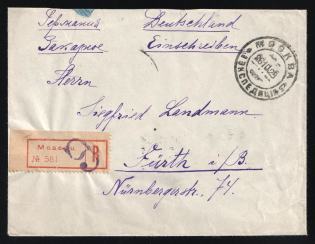 Германия Deutschland
Заказное Einschreiben
Herrn
Siegfried Landmann
Fürth i/B.
Nürnbergerstr. 74.
МОСКВА
ЭКСПЕДИЦІЯ
Moscou
№ 581
R